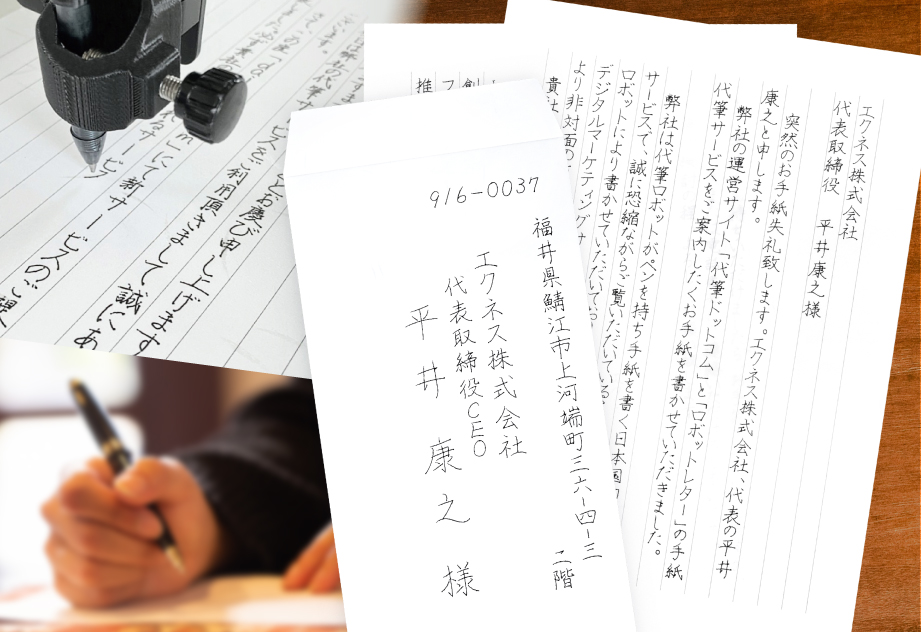 エクネス株式会社
代表取締役 平井康之様
突然のお手紙失礼致します。エクネス株式会社、代表の平井
康之と申します。
弊社の運営サイト「代筆ドットコム」と「ロボットレター」の手紙
代筆サービスをご案内したくお手紙を書かせていただきました。
弊社は代筆ロボットがペンを持ち手紙を書く日本国
サービスで、誠に恐縮ながらご覧いただいている
ロボットにより書かせていただいてお
デジタルマーケティング
より非対面の
貴社
創
フ
推
916-0037
福井県鯖江市上河端町三六-四-三
二階
エクネス株式会社
代表取締役CEO
平井 康之 様
お慶び申し上げます
ビスをご利用頂きまして誠にあ
にて新サービスのご提
サービ